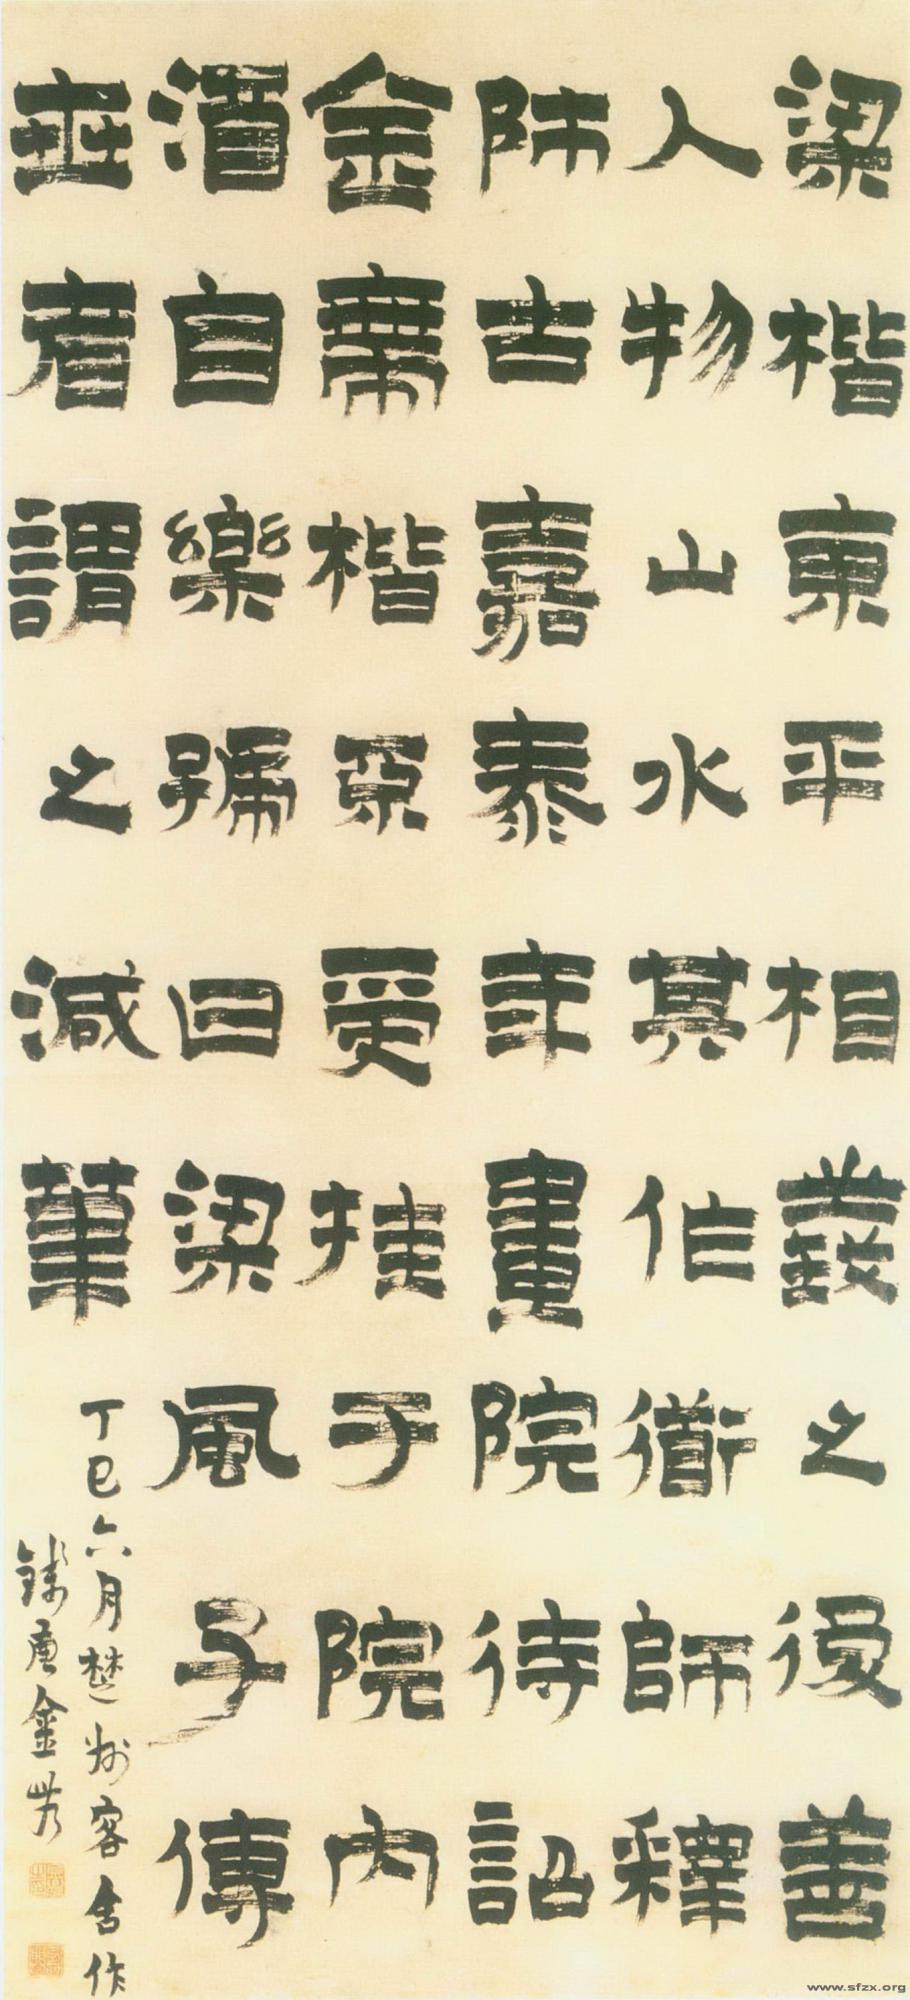 梁楷東平相義之後善
人物山水其作衟師釋
師古嘉泰年畫院待詔
金帶楷受挂于院內
酒自樂號曰梁風子傳
世者謂之減筆
丁巳六月楚州客舍作
錢唐金農
www.sfzx.org